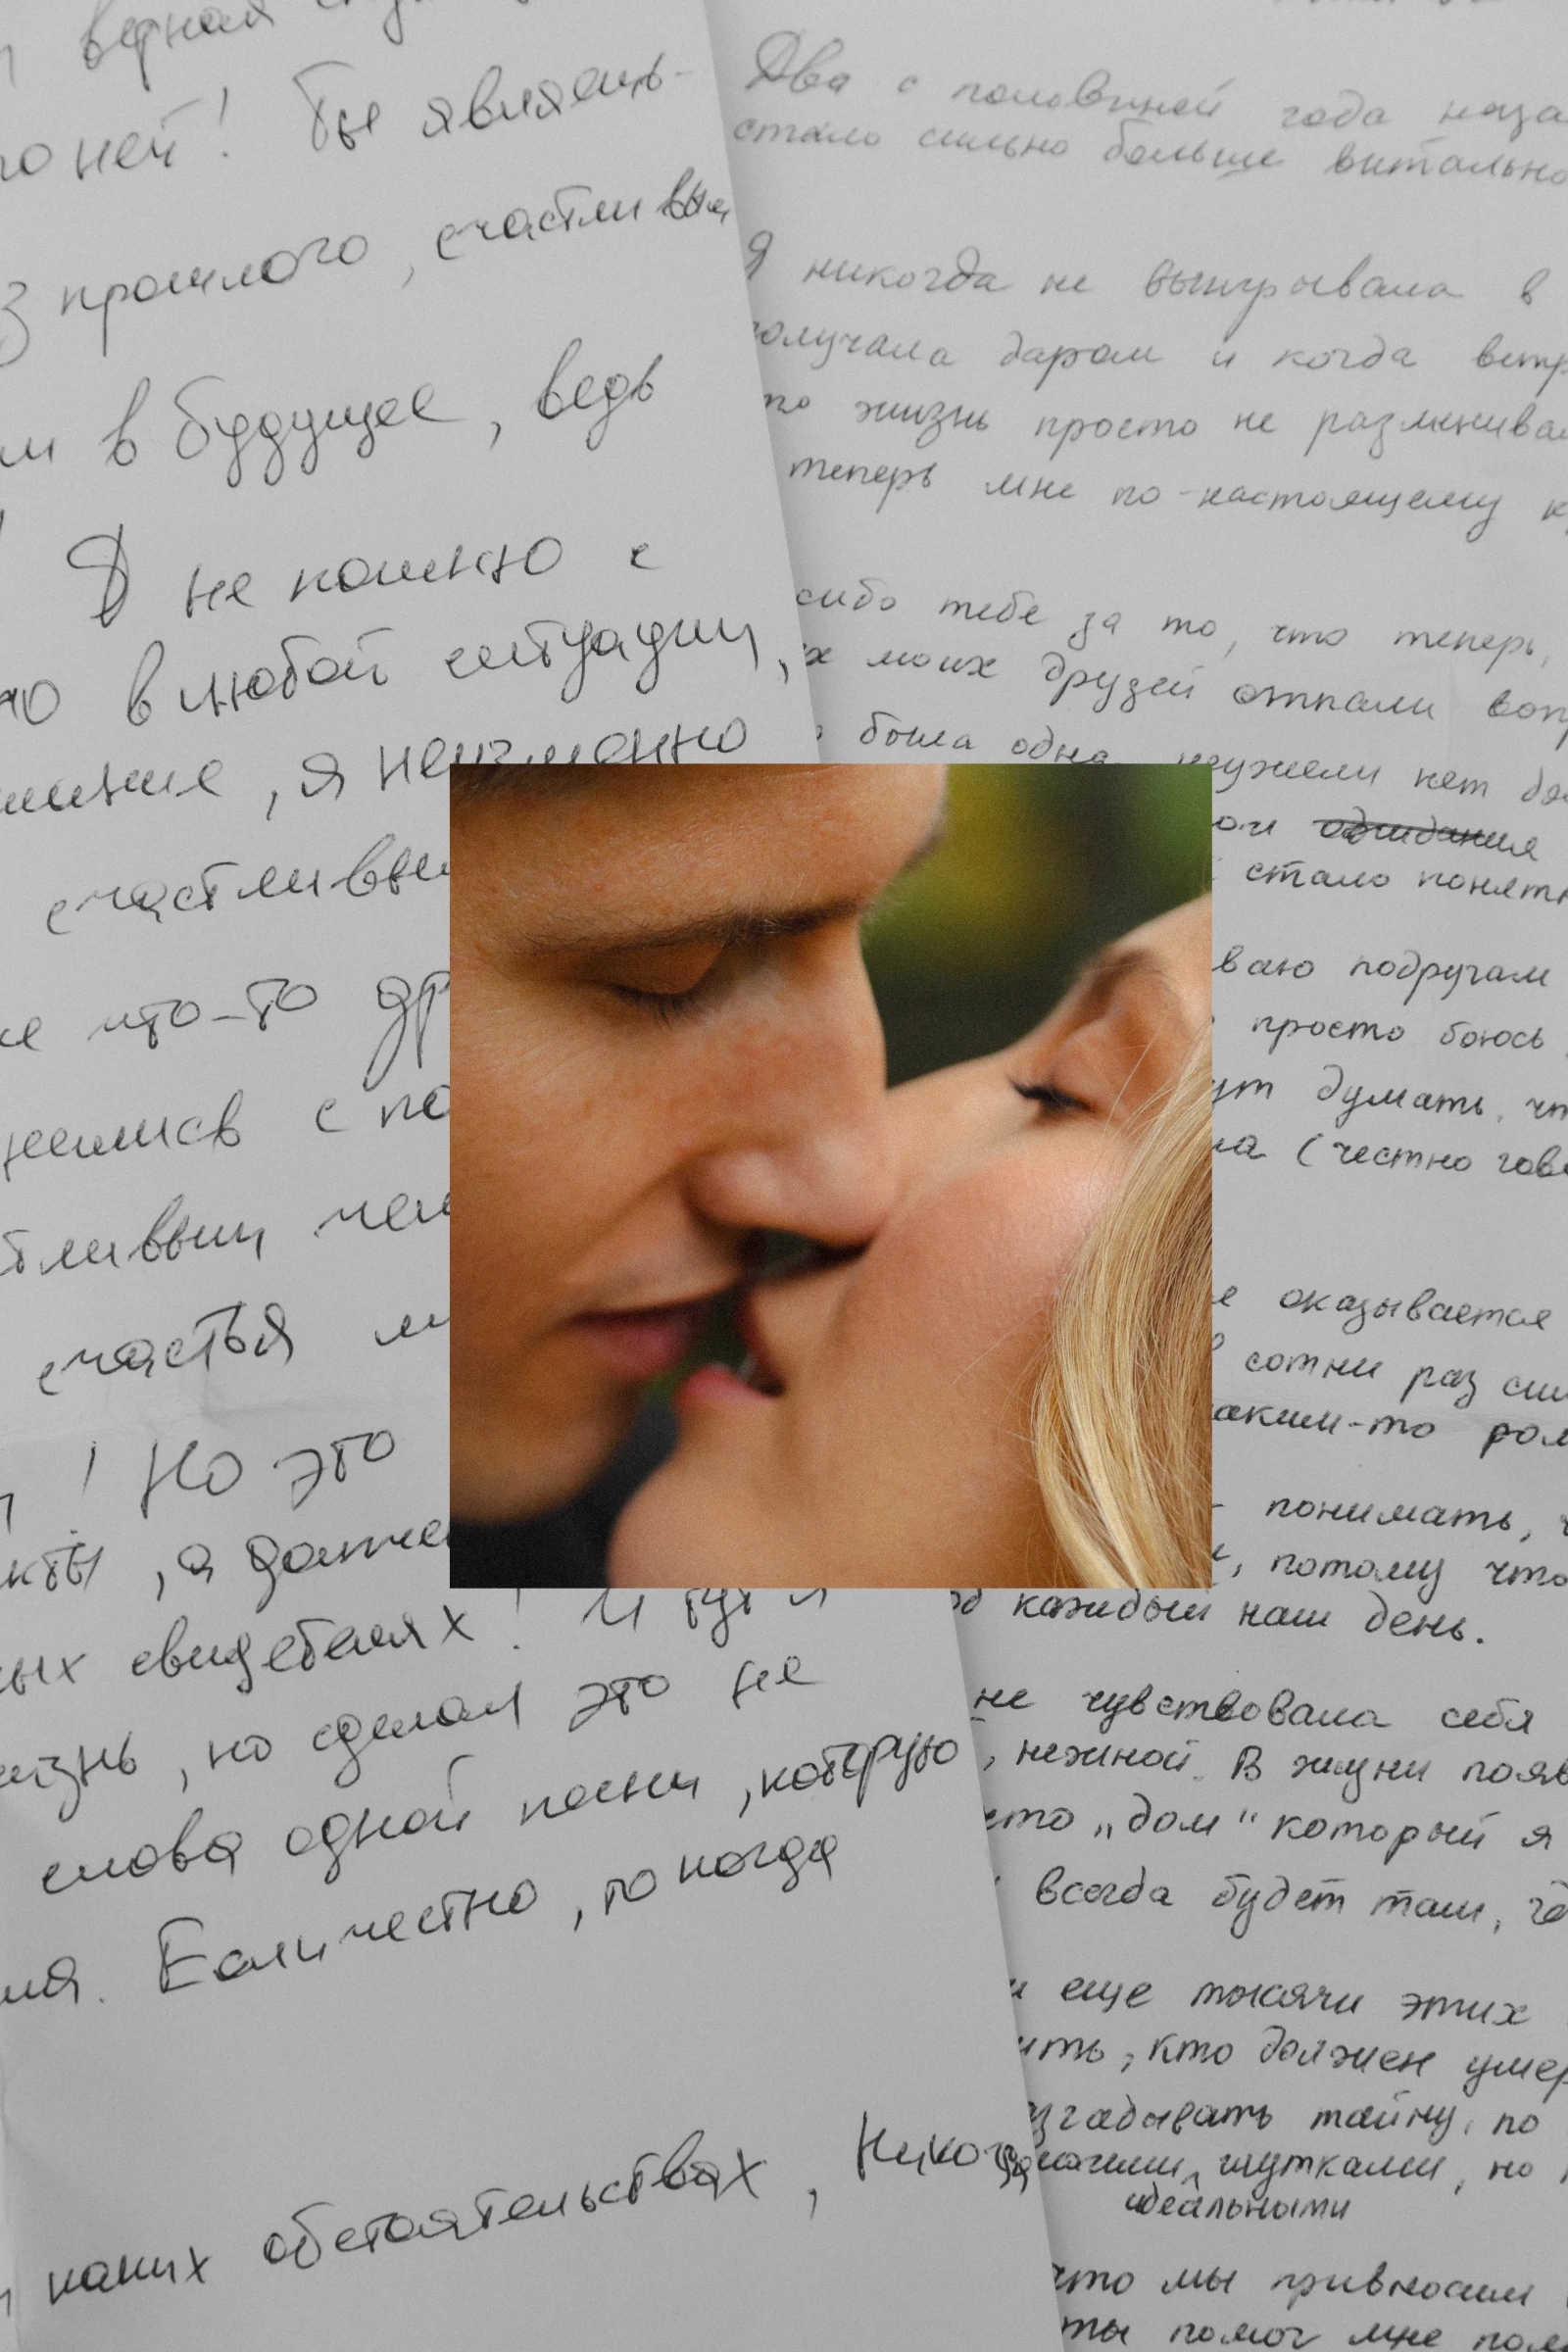 верная
ней! Ты являешь-
з прошлого, счастливы
м в будущее, ведь
Я не помню с
в любой ситуации,
, я неизменно
счастливы
что-то др
с по
тливым чел
счастья м
! Но это
кты, а долже
ых свидетелях! И тут я
изнь, но сделал это не
слова одной песни, которую
ия. Если честно, то когда
каких обстоятельствах, Никогда
Два с половиной года наза
стало сильно больше витально
Я никогда не выигрывала в
олучала даром и когда встр
то жизнь просто не разменивал
теперь мне по-настоящему к
сибо тебе за то, что теперь,
х моих друзей отпали воп
была одна, неужели нет
ои ожидания
стало понятн
ваю подругам
просто боюсь
ут думать, чт
ла (честно гово
е оказывается
сотни раз сил
аким-то ром
понимать, ч
, потому что
каждый наш день.
не чувствовала себя
, нежной. В жизни появ
сто „дом“ который я
всегда будет там, где
и еще тысячи этих
ить, кто должен умер
згадывать тайну, по
шутками, но
идеальными
что мы привносим
ты помог мне пол